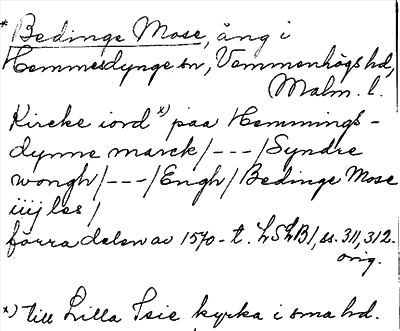 * Bedinge Mose, äng i
Hemmesdynge sn, Vemmenhögs hd,
Malm. l.
Kircke iord *) paa Hemmings-
dynne marck/---/Syndre
wongh/---/Engh/Bedinge Mose
iiij les/
förra delen av 1570-t. LSLB1, ss. 311, 312.
orig.
*) till Lilla Isie kyrka i sma hd.